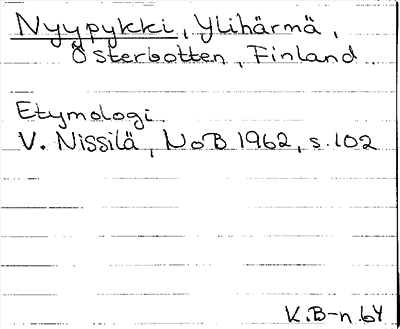 Nyypykki, Ylihärmä,
Österbotten, Finland.
Etymologi
V. Nissilä, NoB 1962, s. 102
K.B-n.64